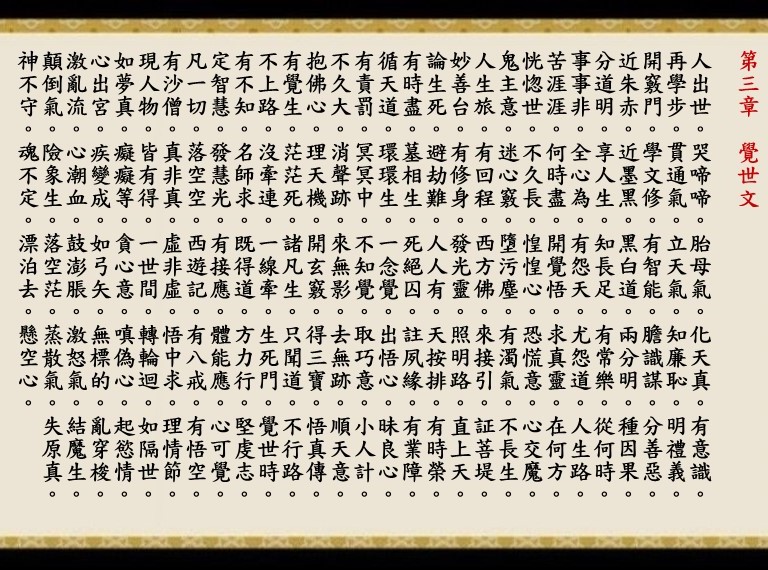 第三章 覺世文
人出世。哭啼啼。胎母氣。化天真。有意識。
再學步。貫通氣。立天氣。知廉恥。明禮義。
開竅門。學文修。有智能。膽識謀。分善惡。
近朱赤。近墨黑。黑白道。兩分明。種因果。
分道明。享人生。知長足。有常樂。從何時。
事事非。全心為。有怨天。尤怨道。人生路。
苦涯涯。何時盡。開心悟。求真靈。在何方。
恍惚世。不久長。惶惶心。恐慌意。心交魔。
鬼主意。迷心竅。墮污塵。有濁氣。不長生。
人生旅。有回程。西方佛。來接引。証菩堤。
妙善台。有修身。發光靈。照明路。直上天。
論生死。避劫難。人人有。天按排。有時榮。
有時盡。墓相生。死絕囚。註夙緣。有業障。
循天道。環環生。一念覺。出悟心。昧良心。
有責罰。冥冥中。不知覺。取巧意。小人計。
不久大。消聲跡。來無影。去無跡。順天意。
抱佛心。理天機。開玄竅。得三寶。悟真傳。
有覺生。茫茫死。諸凡生。只聞道。不行路。
不上路。沒牽連。一線牽。生死門。覺世時。
有不知。名師求。既得道。方力行。堅虔志。
定智慧。發慧光。有接應。體能應。心可覺。
凡一切。落空空。西遊記。有八戒。有悟空。
有沙僧。真非真。虛非虛。悟中求。理情節。
現人物。皆有得。一世間。轉輪迴。如隔世。
如夢真。癡癡等。貪心意。嗔偽心。起慾情。
心出宮。疾變成。如弓矢。無標的。亂穿梭。
激亂流。心潮血。鼓澎脹。激怒氣。結魔生。
顛倒氣。險象生。落空茫。蒸散氣。失原真。
神不守。魂不定。漂泊去。懸空心。